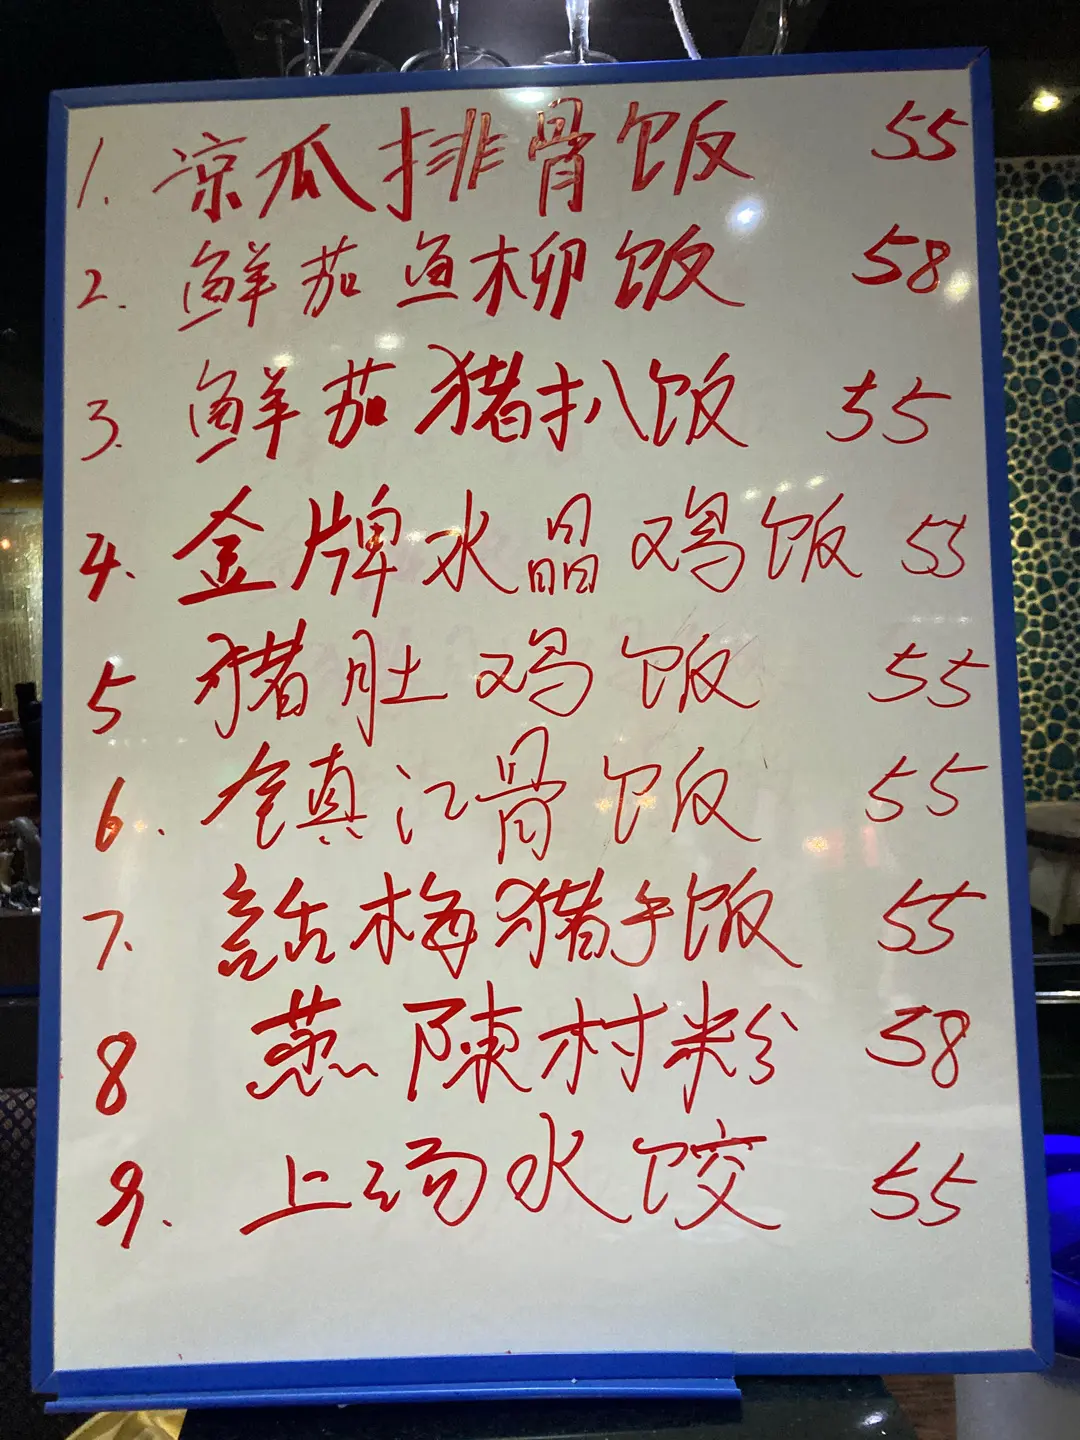 1. 凉瓜排骨饭 55
2. 鲜茄鱼柳饭 58
3. 鲜茄猪扒饭 55
4. 金牌水晶鸡饭 55
5 猪肚鸡饭 55
6. 全鎮江骨饭 55
7. 話梅猪手饭 55
8 蒸陳村粉 58
9. 上汤水饺 55